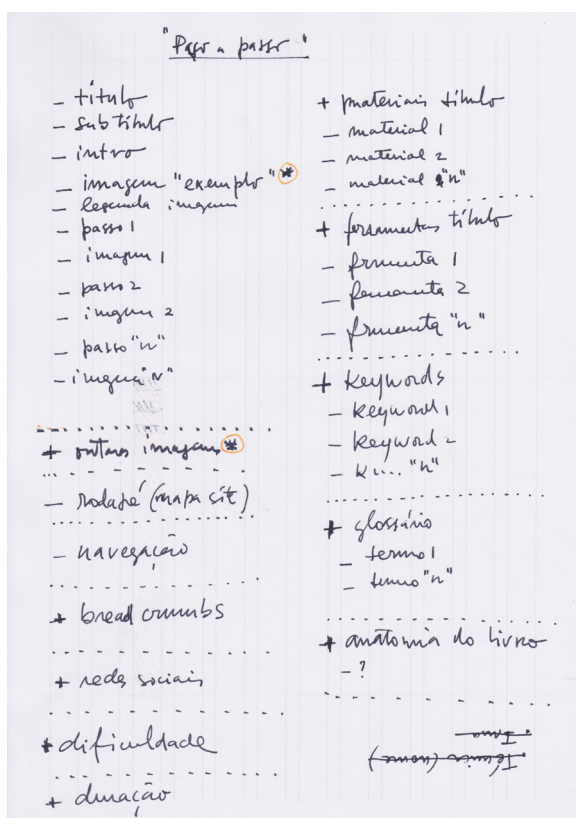 "Passo a passo"
- título
- subtítulo
- intro
- imagem "exemplo" *
- legenda imagem
- passo 1
- imagem 1
- passo 2
- imagem 2
- passo "n"
- imagem "n"
+ outras imagens *
- rodapé (mapa site)
- navegação
+ bread crumbs
+ redes sociais
* dificuldade
+ duração
+ materiais título
- material 1
- material 2
- material "n"
+ ferramentas título
- ferramenta 1
- ferramenta 2
- ferramenta "n"
+ keywords
- keyword 1
- keyword 2
- k.... "n"
+ glossário
- termo 1
- termo "n"
+ anatomia do livro
- ?